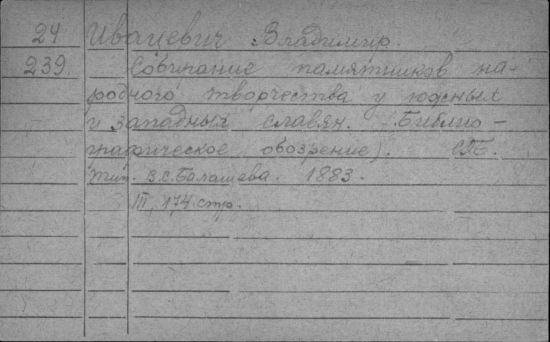 24 Ивацевич Владимир.
239 Собирание памятников на-
родного творчества у южных
и западных славян. (Библио-
графическое обозрение). СПБ.
тип. В.С. Балашева. 1883.
III, 174 стр.